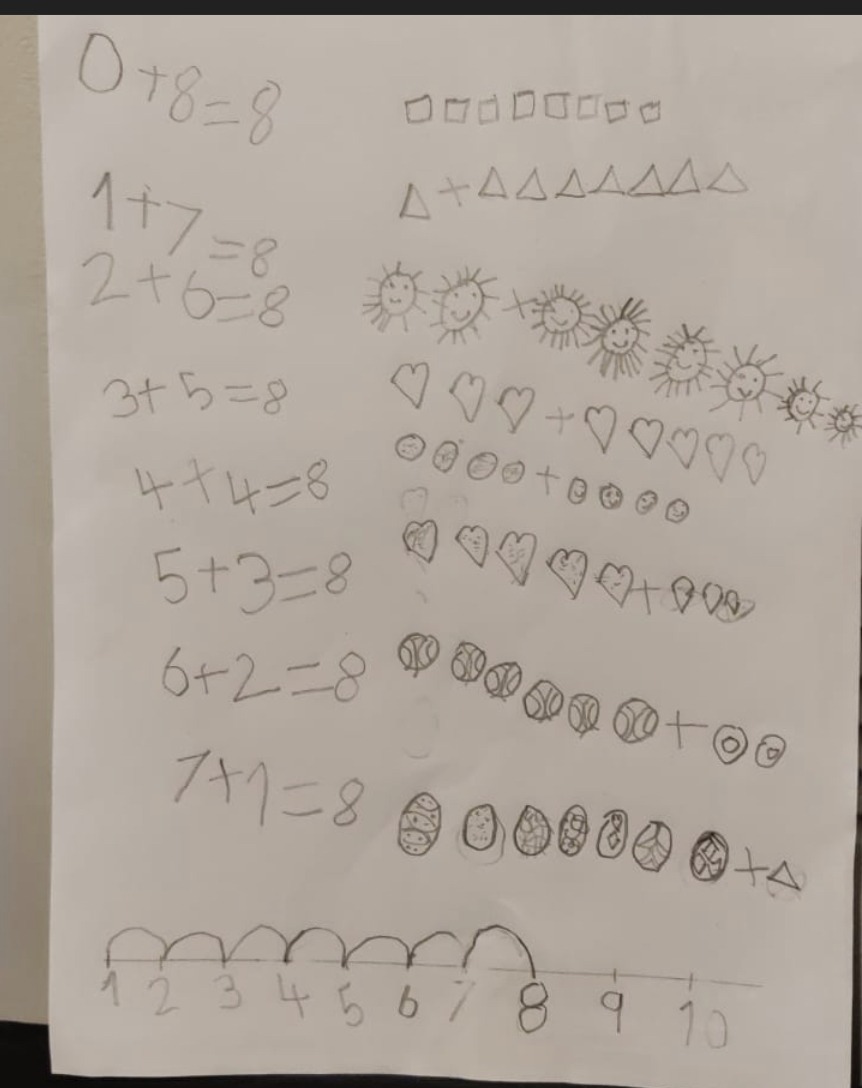 0+8=8
1+7=8
2+6=8
3+5=8
4+4=8
5+3=8
6+2=8
7+1=8
1 2 3 4 5 6 7 8 9 10